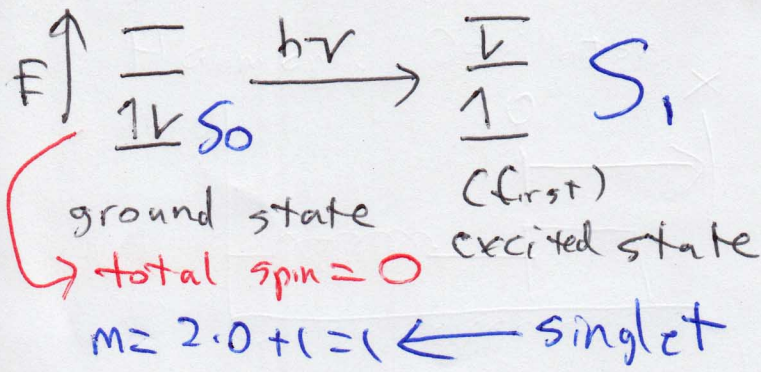 hν
E
1ν S0
1
S1
ground state
(first)
excited state
total spin = 0
m = 2·0+1=1 ← singlet